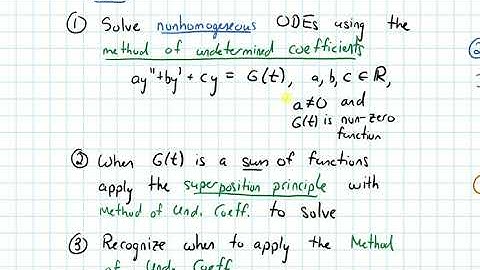 ① Solve nonhomogeneous ODEs using the
method of undetermined coefficients
ay" + by' + cy = G(t), a, b, c ∈ ℝ,
a≠0 and
G(t) is non-zero
function
② When G(t) is a sum of functions
apply the superposition principle with
Method of Und. Coeff. to solve
③ Recognize when to apply the Method
of Und. Coeff